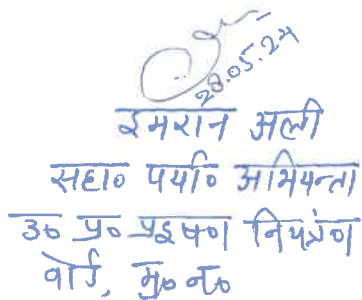 28.05.24
इमरान अली
सहा० पर्या० अभियन्ता
उ० प्र० प्रदूषण नियंत्रण
बोर्ड, मु० न०